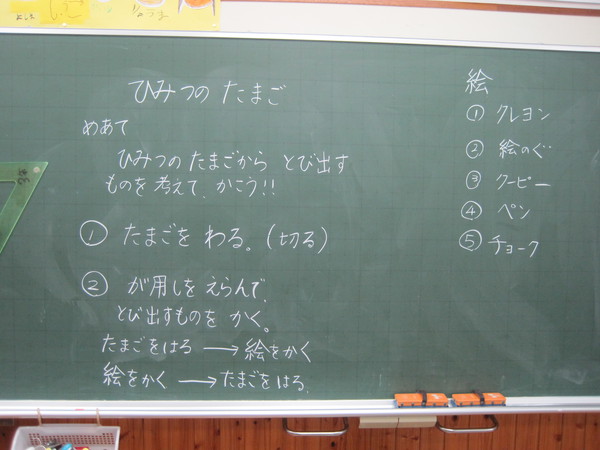 ひみつの たまご
めあて
ひみつの たまごから とび出す
ものを 考えて、かこう!!
① たまごを わる。(切る)
② が用しを えらんで、
とび出すものを かく。
たまごをはる → 絵をかく
絵をかく → たまごをはる。
絵
① クレヨン
② 絵のぐ
③ クーピー
④ ペン
⑤ チョーク